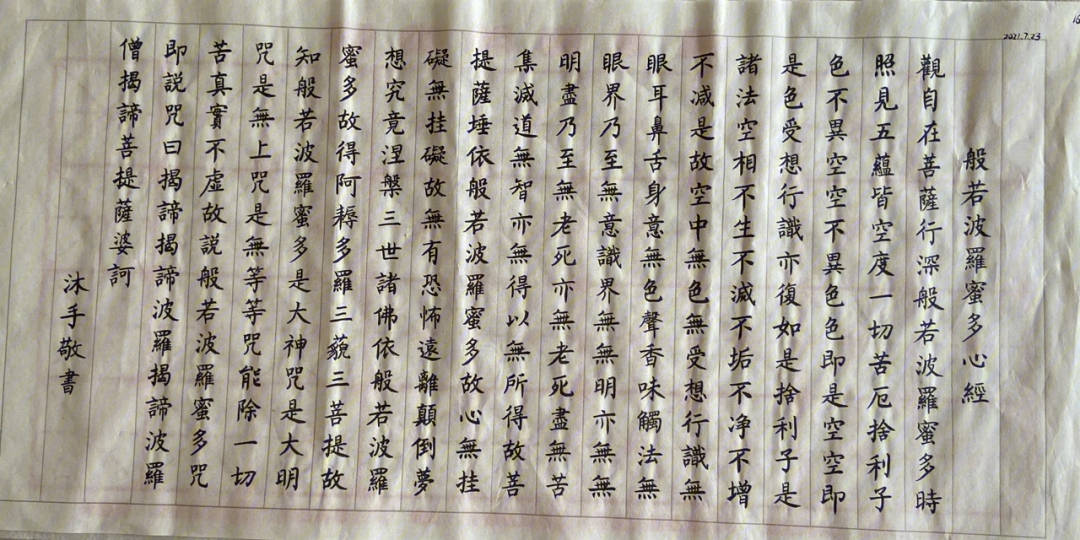 2021.7.23
般若波羅蜜多心經
觀自在菩薩行深般若波羅蜜多時
照見五蘊皆空度一切苦厄捨利子
色不異空空不異色色即是空空即
是色受想行識亦復如是捨利子是
諸法空相不生不滅不垢不净不增
不减是故空中無色無受想行識無
眼耳鼻舌身意無色聲香味觸法無
眼界乃至無意識界無無明亦無無
明盡乃至無老死亦無老死盡無苦
集滅道無智亦無得以無所得故菩
提薩埵依般若波羅蜜多故心無挂
礙無挂礙故無有恐怖遠離顛倒夢
想究竟涅槃三世諸佛依般若波羅
蜜多故得阿耨多羅三藐三菩提故
知般若波羅蜜多是大神咒是大明
咒是無上咒是無等等咒能除一切
苦真實不虛故説般若波羅蜜多咒
即説咒曰揭諦揭諦波羅揭諦波羅
僧揭諦菩提薩婆訶
沐手敬書